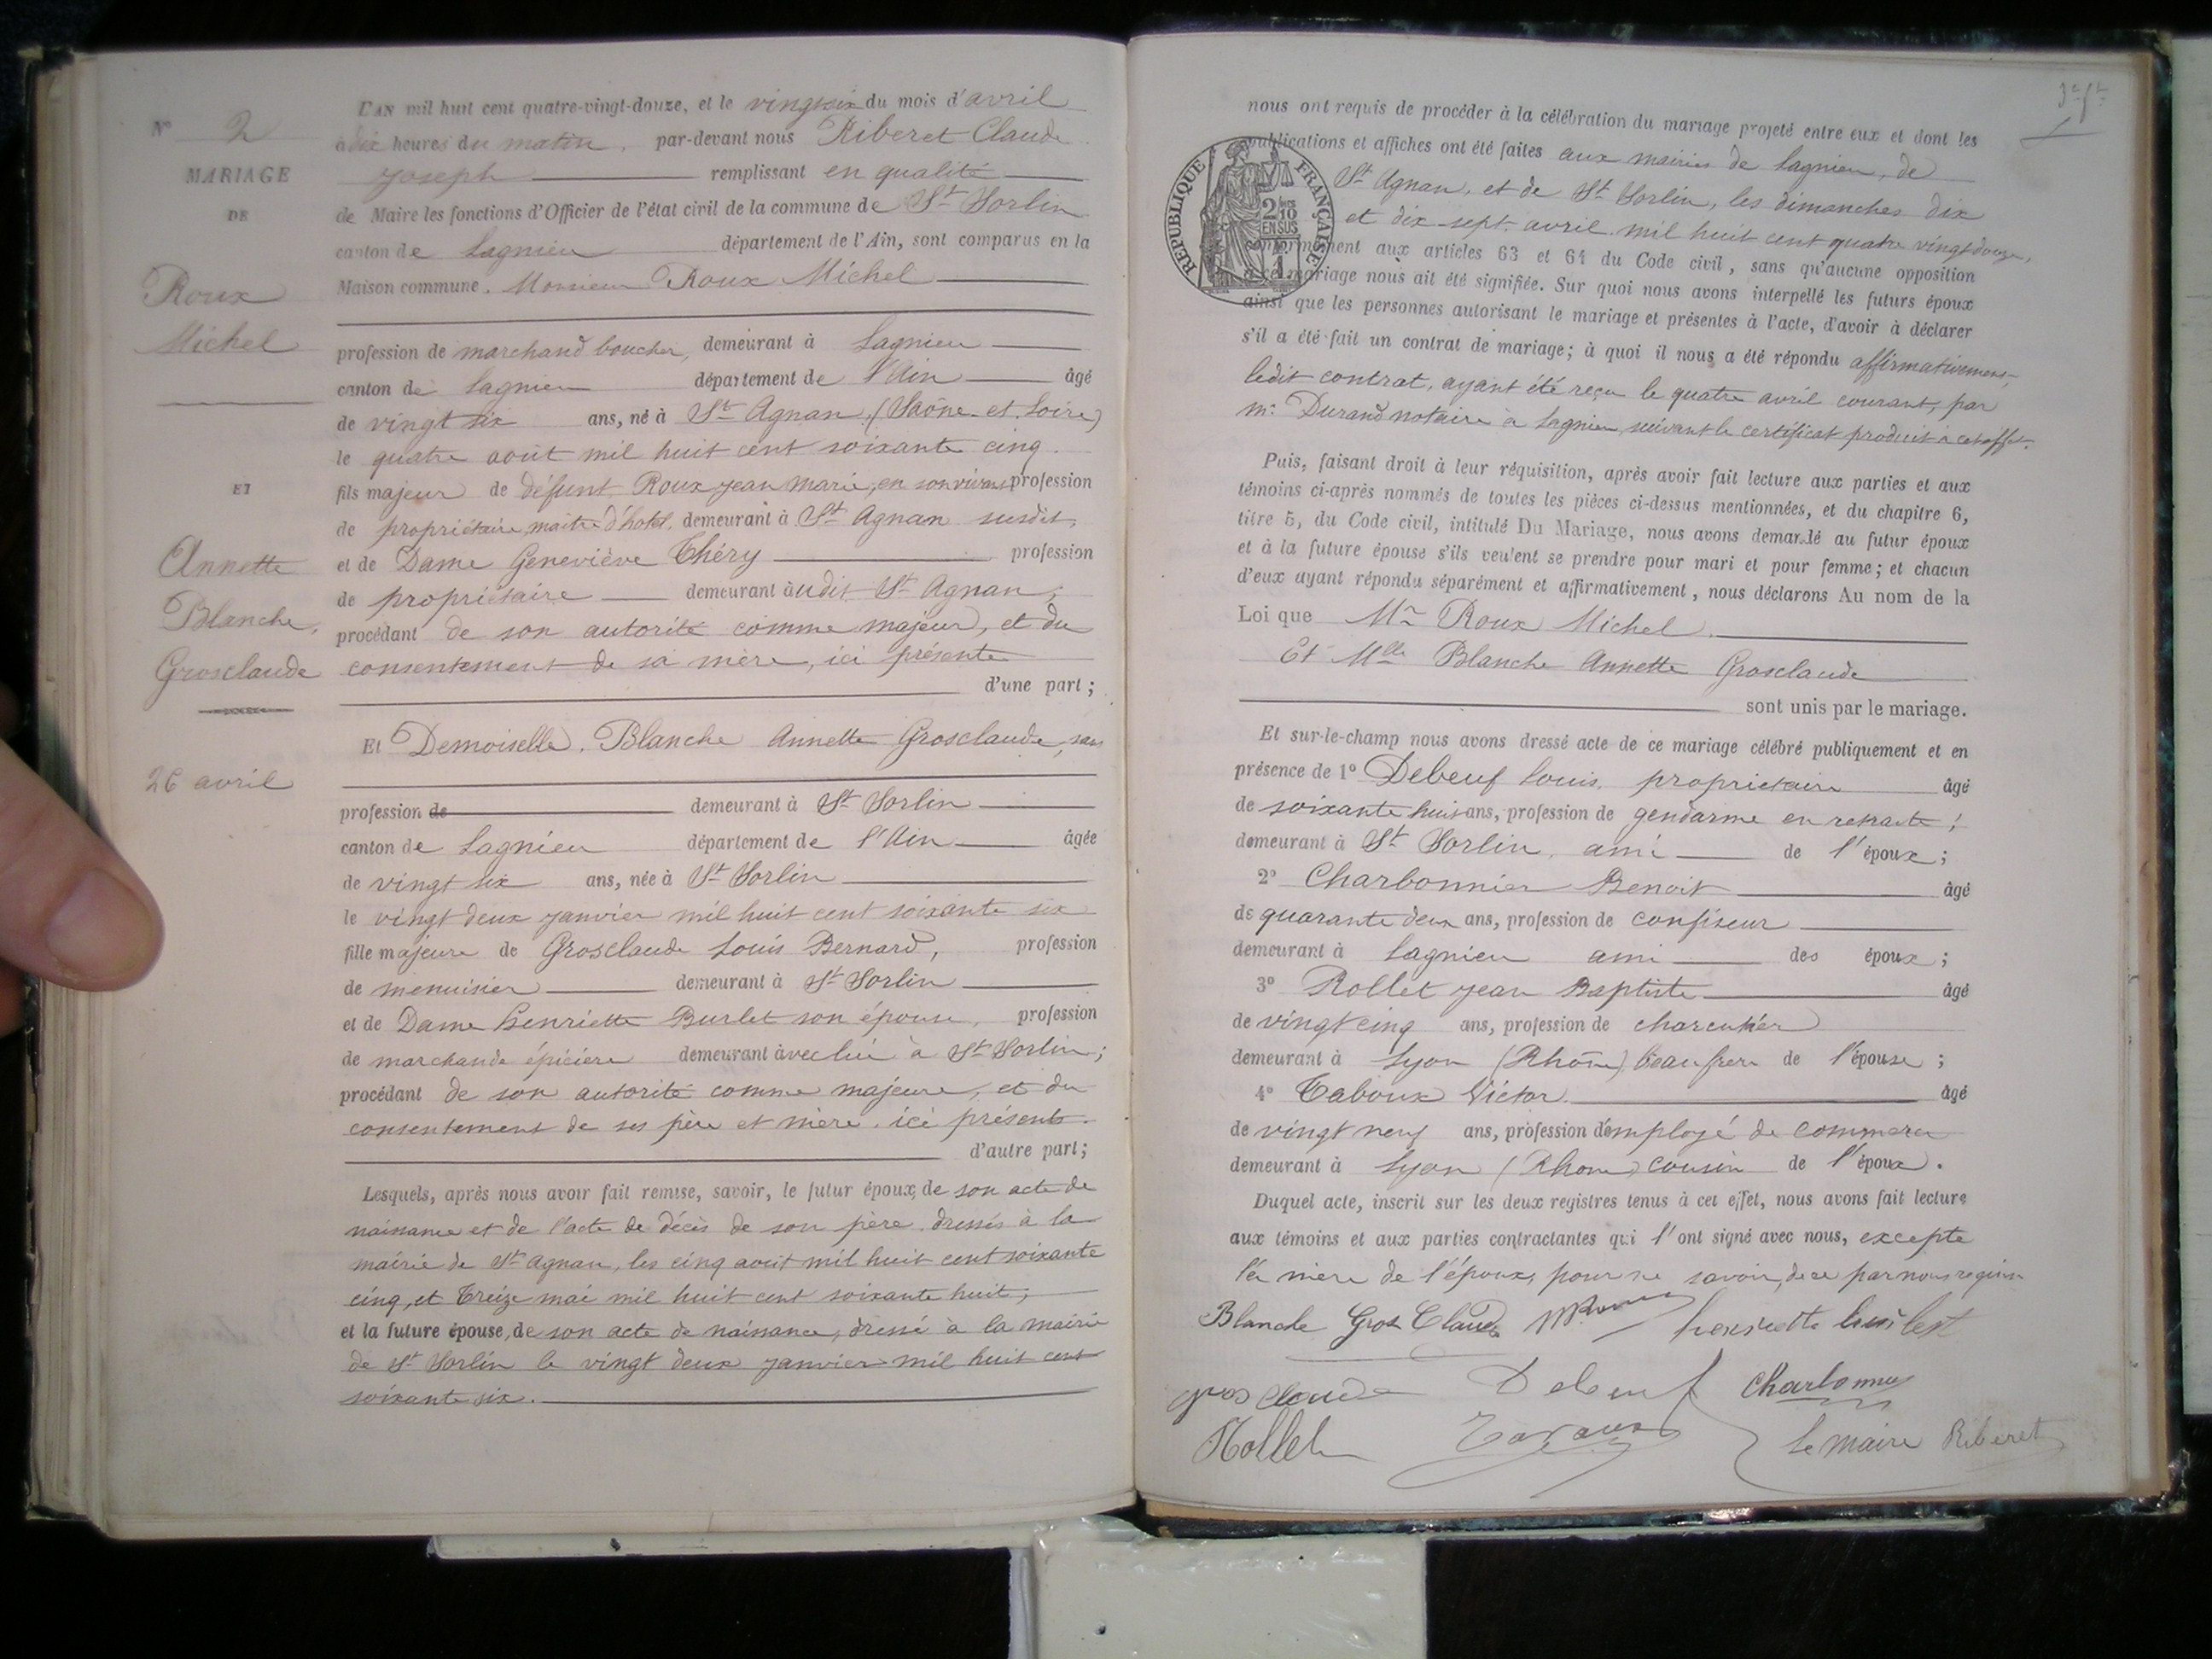 L'AN mil huit cent quatre-vingt-douze, et le vingt six du mois d'avril
N° 2
à dix heures du matin, par-devant nous Riberet Claude
MARIAGE
Joseph remplissant en qualité
DE
de Maire les fonctions d'Officier de l'état civil de la commune de St Sorlin
canton de Lagnieu département de l'Ain, sont comparus en la
Roux
Maison commune. Monsieur Roux Michel
Michel
profession de marchand boucher, demeurant à Lagnieu
canton de Lagnieu département de l'Ain âgé
de vingt six ans, né à St Agnan, (Saône-et-Loire)
le quatre août mil huit cent soixante cinq.
ET
fils majeur de défunt Roux Jean Marie, en son vivant profession
de propriétaire, maître d'hotel, demeurant à St Agnan susdit,
Annette
et de Dame Geneviève Théry profession
Blanche,
de propriétaire demeurant audit St Agnan,
procédant de son autorité comme majeur, et du
Grosclaude
consentement de sa mère, ici présente
d'une part;
Et Demoiselle Blanche Annette Grosclaude, sans
26 avril
profession de demeurant à St Sorlin
canton de Lagnieu département de l'Ain âgée
de vingt six ans, née à St Sorlin
le vingt deux janvier mil huit cent soixante six
fille majeure de Grosclaude Louis Bernard, profession
de menuisier demeurant à St Sorlin
et de Dame Henriette Burlet son épouse, profession
de marchande épicière demeurant avec lui à St Sorlin;
procédant de son autorité comme majeure, et du
consentement de ses père et mère, ici présents.
d'autre part;
Lesquels, après nous avoir fait remise, savoir, le futur époux, de son acte de
naissance et de l'acte de décès de son père, dressés à la
mairie de St Agnan, les cinq août mil huit cent soixante
cinq, et treize mai mil huit cent soixante huit,
et la future épouse, de son acte de naissance, dressé à la mairie
de St Sorlin le vingt deux janvier mil huit cent
soixante six.
nous ont requis de procéder à la célébration du mariage projeté entre eux et dont les
publications et affiches ont été faites aux mairies de Lagnieu, de
St Agnan, et de St Sorlin, les dimanches dix
et dix-sept avril mil huit cent quatre vingt douze,
RÉPUBLIQUE FRANÇAISE
2 10 EN SUS
conformément aux articles 63 et 64 du Code civil, sans qu'aucune opposition
à ce mariage nous ait été signifiée. Sur quoi nous avons interpellé les futurs époux
ainsi que les personnes autorisant le mariage et présentes à l'acte, d'avoir à déclarer
s'il a été fait un contrat de mariage; à quoi il nous a été répondu affirmativement,
ledit contrat, ayant été reçu le quatre avril courant, par
Me Durand notaire à Lagnieu, suivant le certificat produit à cet effet.
Puis, faisant droit à leur réquisition, après avoir fait lecture aux parties et aux
témoins ci-après nommés de toutes les pièces ci-dessus mentionnées, et du chapitre 6,
titre 5, du Code civil, intitulé Du Mariage, nous avons demandé au futur époux
et à la future épouse s'ils veulent se prendre pour mari et pour femme; et chacun
d'eux ayant répondu séparément et affirmativement, nous déclarons Au nom de la
Loi que Mr Roux Michel
Et Mlle Blanche Annette Grosclaude
sont unis par le mariage.
Et sur-le-champ nous avons dressé acte de ce mariage célébré publiquement et en
présence de 1° Debeuf Louis, propriétaire âgé
de soixante huit ans, profession de gendarme en retraite;
demeurant à St Sorlin, ami de l'époux;
2° Charbonnier Benoit âgé
de quarante deux ans, profession de confiseur
demeurant à Lagnieu ami des époux;
3° Rollet Jean Baptiste âgé
de vingt cinq ans, profession de charcutier
demeurant à Lyon (Rhône) beau frère de l'épouse;
4° Taboux Victor âgé
de vingt neuf ans, profession d'employé de commerce
demeurant à Lyon (Rhône) cousin de l'époux.
Duquel acte, inscrit sur les deux registres tenus à cet effet, nous avons fait lecture
aux témoins et aux parties contractantes qui l'ont signé avec nous, excepté
la mère de l'époux, pour ne savoir, de ce par nous requise
Blanche Gros Claude M Roux Henriette
gros claude Debeuf Charbonnier
Rollet Le Maire Riberet